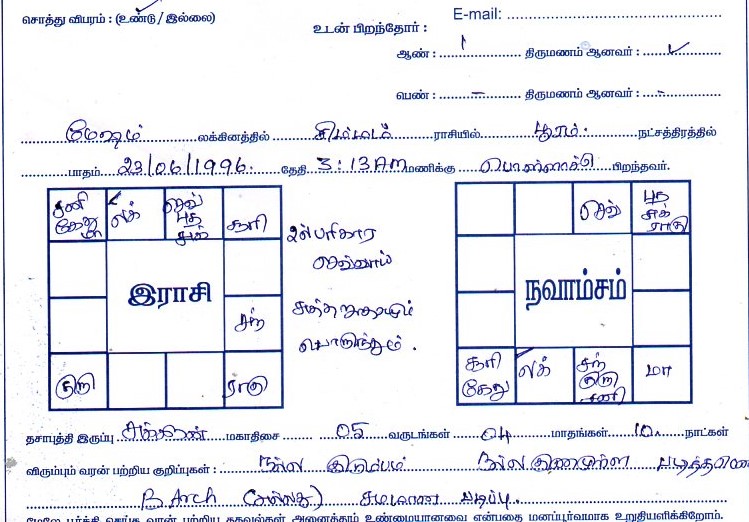 சொத்து விபரம் : (உண்டு / இல்லை)
E-mail:
உடன் பிறந்தோர் :
ஆண் : 1 திருமணம் ஆனவர் : ✓
பெண் : – திருமணம் ஆனவர் : –
மேஷம் லக்கினத்தில் சிம்மம் ராசியில் பூரம் நட்சத்திரத்தில்
பாதம் 23/06/1996. தேதி 3:13 AM மணிக்கு பொள்ளாச்சி பிறந்தவர்.
சனி கேது மா
லக்
செவ் புத சுக்
சூரி
சந்
ராகு
குரு
இராசி
பரிகார
செவ்வாய்
பொருந்தும்.
செவ்
புத சுக் ராகு
மா
சந் குரு சனி
லக்
சூரி கேது
நவாம்சம்
தசாபுத்தி இருப்பு சுக்கிரன் மகாதிசை 05 வருடங்கள் 04 மாதங்கள் 10 நாட்கள்
விரும்பும் வரன் பற்றிய குறிப்புகள் : நல்ல குடும்பம் நல்ல குணமுள்ள
B.Arch (அல்லது) சமமான படிப்பு.
மேலே பூர்த்தி செய்த வரன் பற்றிய தகவல்கள் அனைத்தும் உண்மையானவை என்பதை மனப்பூர்வமாக உறுதியளிக்கிறோம்.